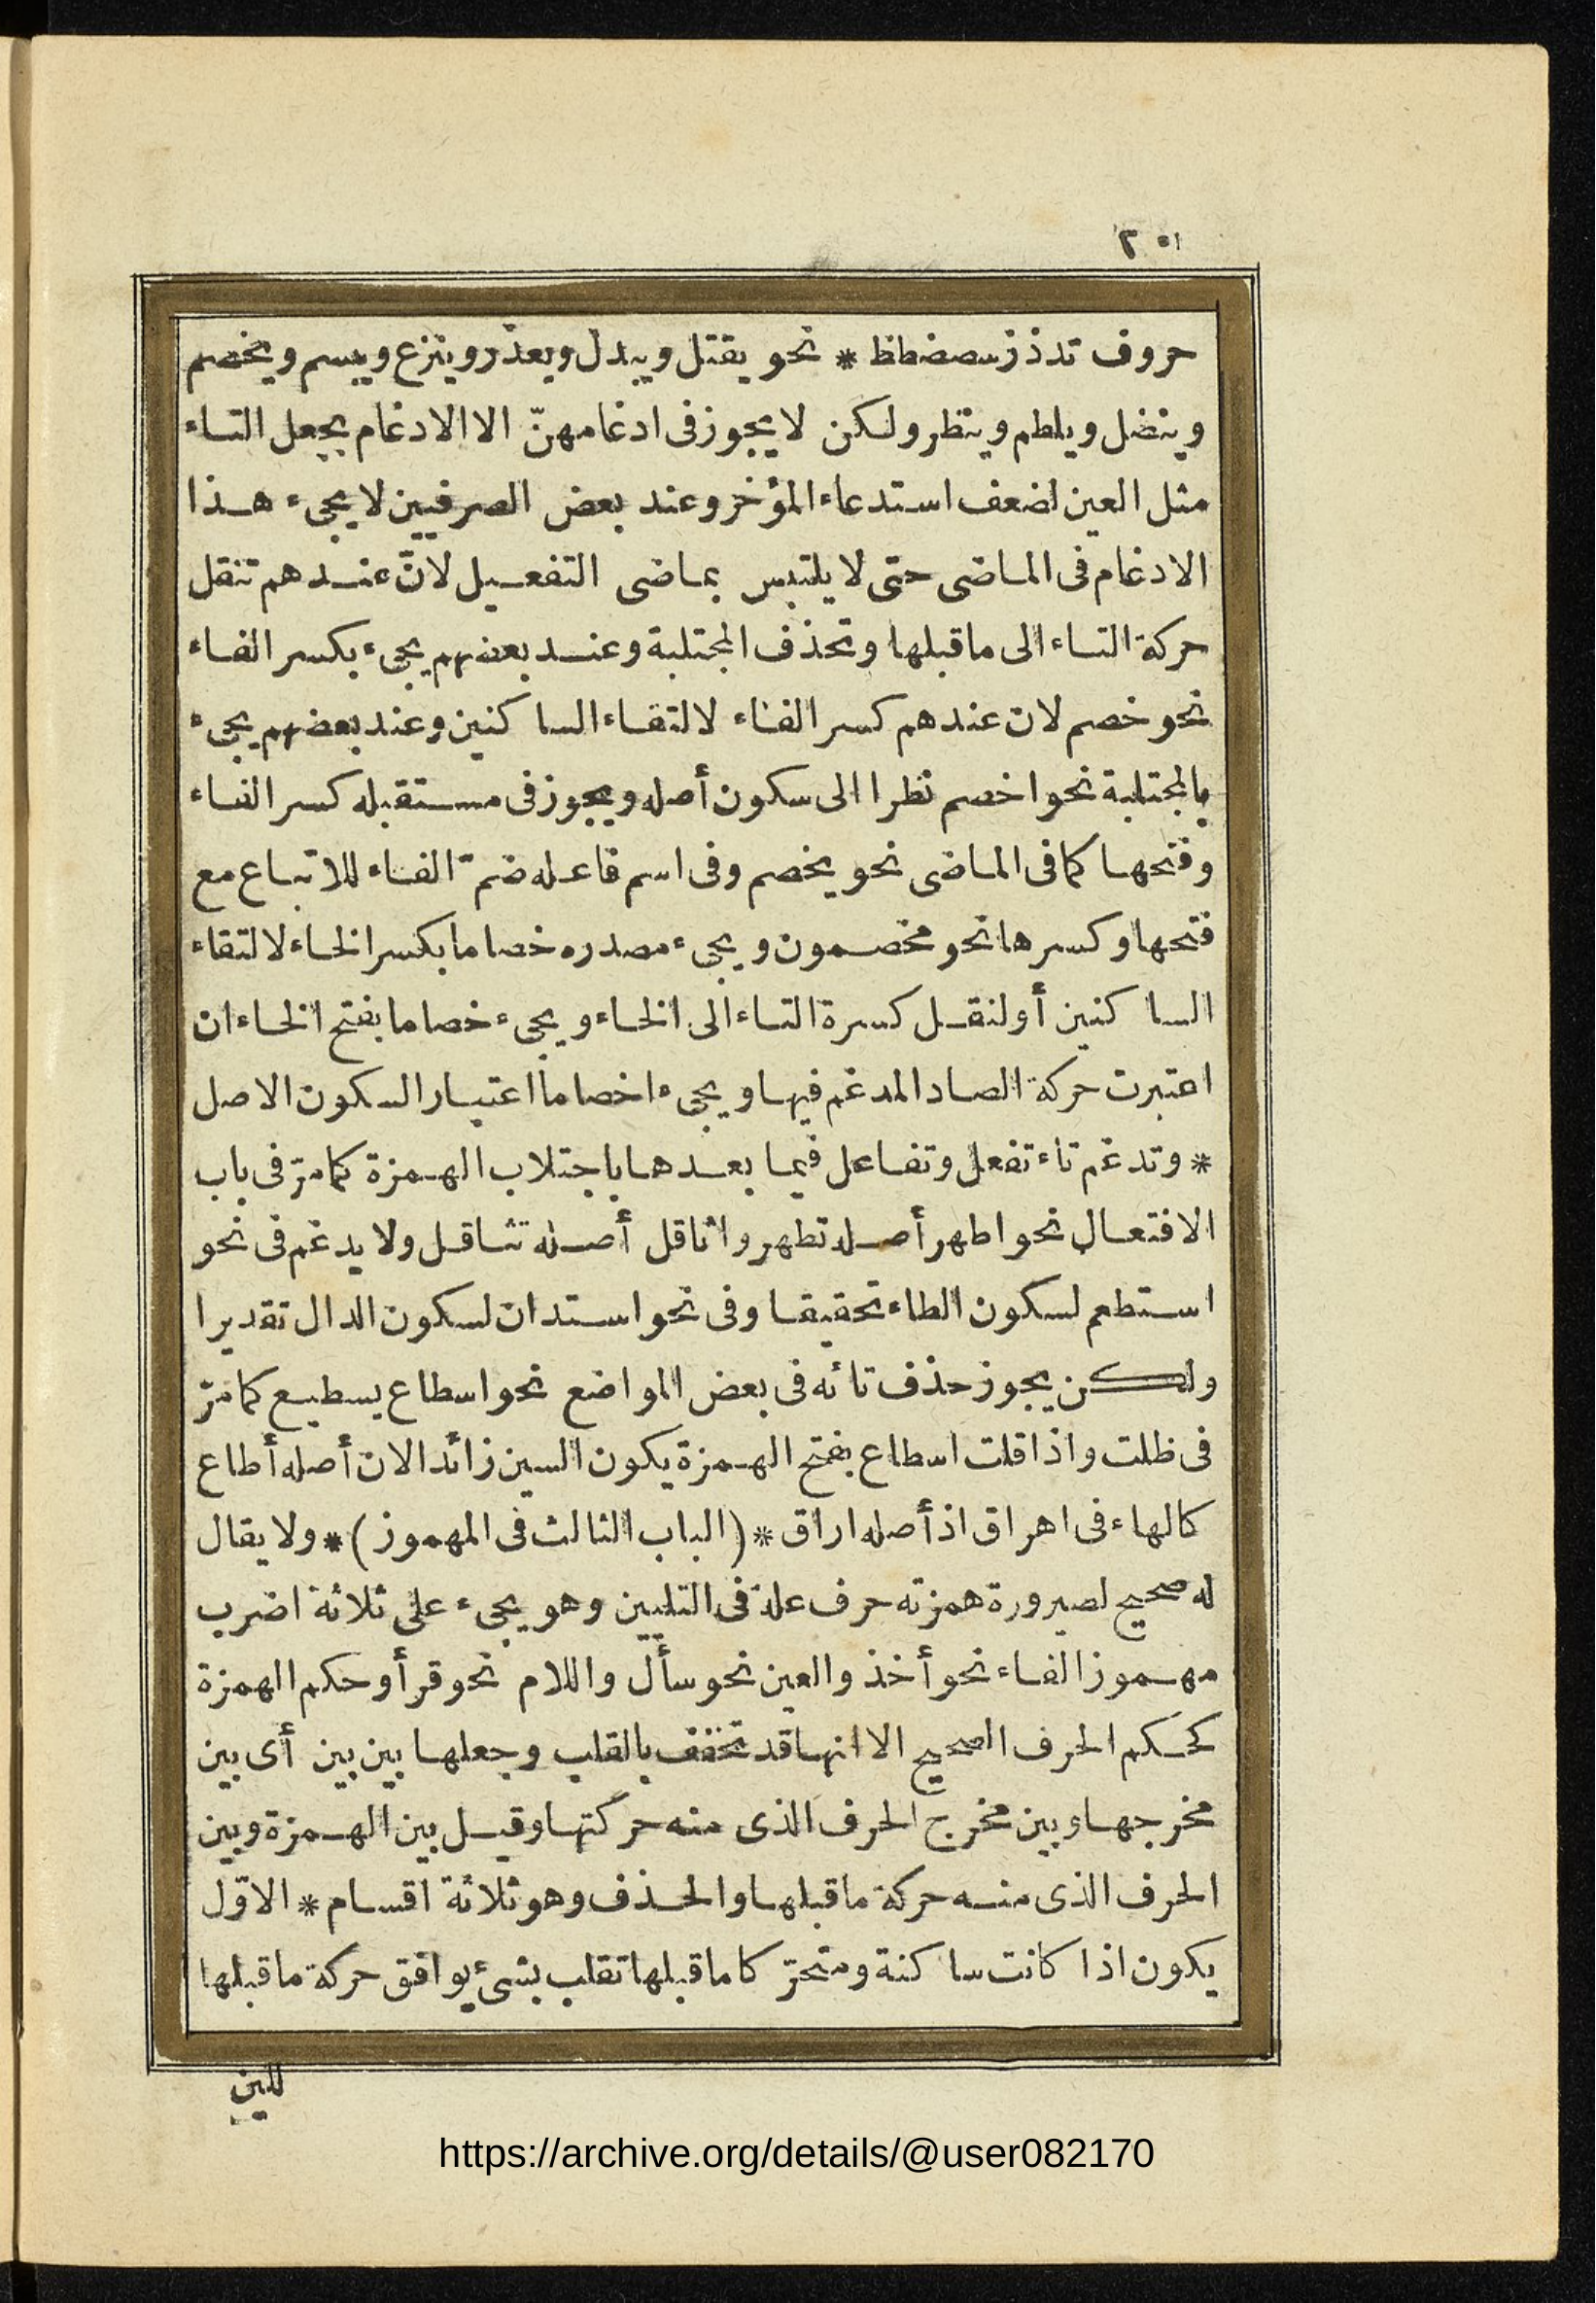 ٢٥١
حروف تدذزسصضطظ * نحو يقتل ويبدل ويعذر وينزع ويبسم ويخصم
وينضل ويلطم وينظر ولكن لا يجوز فى ادغامهنّ الا الادغام بجعل التاء
مثل العين لضعف استدعاء المؤخر وعند بعض الصرفيين لا يجىء هذا
الادغام فى الماضى حتى لا يلتبس بماضى التفعيل لانّ عندهم تنقل
حركة التاء الى ما قبلها وتحذف المجتلبة وعند بعضهم يجىء بكسر الفاء
نحو خصم لان عندهم كسر الفاء لالتقاء الساكنين وعند بعضهم يجىء
بالمجتلبة نحو اخصم نظرا الى سكون أصله ويجوز فى مستقبله كسر الفاء
وفتحها كما فى الماضى نحو يخصم وفى اسم فاعله ضمّ الفاء للاتباع مع
فتحها وكسرها نحو مخصمون ويجىء مصدره خصاما بكسر الخاء لالتقاء
الساكنين أو لنقل كسرة التاء الى الخاء ويجىء خصاما بفتح الخاء ان
اعتبرت حركة الصاد المدغم فيها ويجىء اخصاما اعتبار السكون الاصل
* وتدغم تاء تفعل وتفاعل فيما بعدها باجتلاب الهمزة كما مرّ فى باب
الافتعال نحو اطهر أصله تطهر واثاقل أصله تثاقل ولا يدغم فى نحو
استطعم لسكون الطاء تحقيقا وفى نحو استدان لسكون الدال تقديرا
ولكن يجوز حذف تائه فى بعض المواضع نحو اسطاع يسطيع كما مرّ
فى ظلت واذا قلت اسطاع بفتح الهمزة يكون السين زائدا لان أصله أطاع
كالهاء فى اهراق اذ أصله اراق * (الباب الثالث فى المهموز) * ولا يقال
له صحيح لصيرورة همزته حرف علة فى التليين وهو يجىء على ثلاثة اضرب
مهموز الفاء نحو أخذ والعين نحو سأل واللام نحو قرأ وحكم الهمزة
كحكم الحرف الصحيح الا انها قد تخفف بالقلب وجعلها بين بين أى بين
مخرجها وبين مخرج الحرف الذى منه حركتها وقيل بين الهمزة وبين
الحرف الذى منه حركة ما قبلها والحذف وهو ثلاثة اقسام * الاوّل
يكون اذا كانت ساكنة ومتحرّكا ما قبلها تقلب بشىء يوافق حركة ما قبلها
للين
https://archive.org/details/@user082170